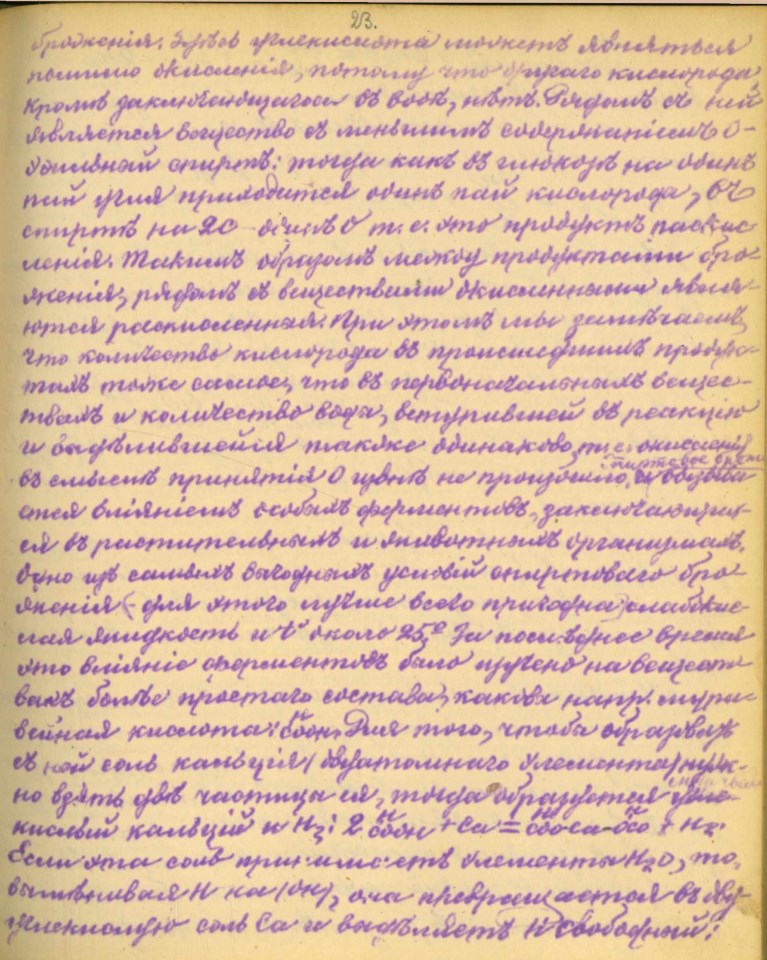 23.
броженія. Здѣсь углекислота можетъ являться
помимо окисленія, потому что другаго кислорода,
кромѣ заключающагося въ водѣ, нѣтъ. Рядомъ съ ней
является вещество съ меньшимъ содержаніемъ О –
этильный спиртъ: тогда какъ въ глюкозѣ на одинъ
пай угля приходится одинъ пай кислорода, въ
спиртѣ на 2С – одинъ О т. е. это продуктъ раскис-
ленія. Такимъ образомъ между продуктами бро-
женія, рядомъ съ веществами окисленными явля-
ются раскисленныя. При этомъ мы замѣчаемъ,
что количество кислорода въ происшедшихъ продук-
тахъ тоже самое, что въ первоначальныхъ вещес-
твахъ и количество воды, вступившей въ реакцію
и выдѣлившейся также одинаково, т. е. окисленія
въ смыслѣ принятія О извнѣ не произошло.
Спиртовое
ется вліяніемъ особыхъ ферментовъ, заключающих-
ся въ растительныхъ и животныхъ организмахъ.
Одно изъ самыхъ выгодныхъ условій спиртоваго бро-
женія (– для этого лучше всего пригодна) слабокис-
лая жидкость и t° около 25°. За послѣднее время
это вліяніе ферментовъ было изучено на вещест-
вахъ болѣе простаго состава, какова напр. мура-
вейная кислота: Для того, чтобы образовать
съ ней соль кальція (двуатомнаго элемента) нуж-
но взять двѣ частицы ея, тогда образуется
кислый кальцій и H₂: 2 + Ca = + H₂.
Если эта соль приметъ элементы H₂O, то,
вымѣнивая H на (OH), она превращается въ дву-
углекислую соль Ca и выдѣляетъ H свободный: